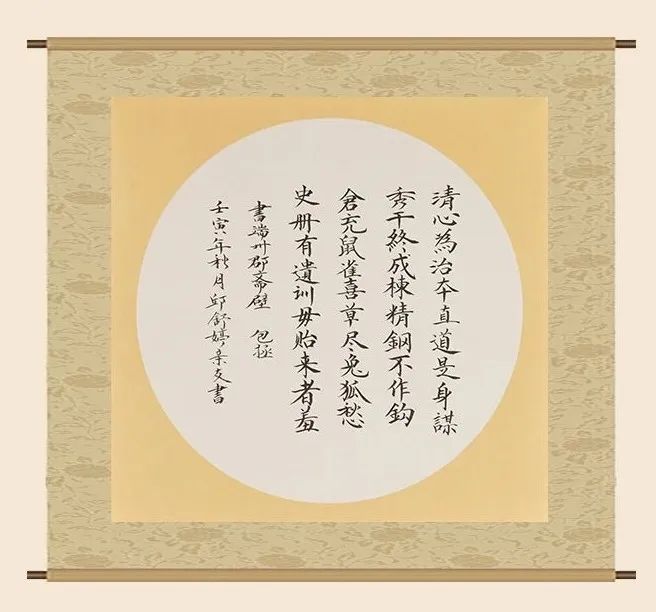 清心為治本直道是身謀
秀干終成棟精鋼不作鈎
倉充鼠雀喜草尽兔狐愁
史册有遺訓毋貽来者羞
書端州郡斋壁 包拯
壬寅年秋月邱舒婷書